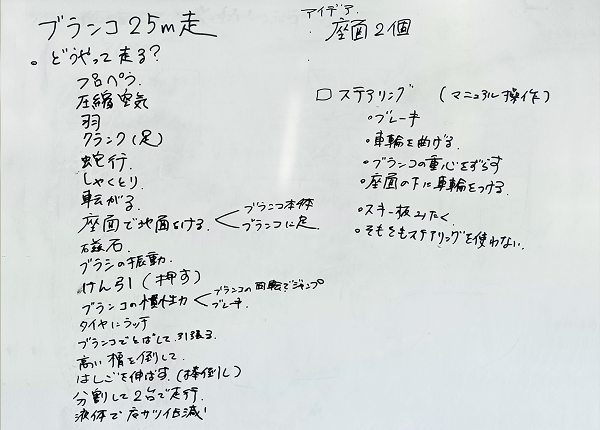 ブランコ25m走
。どうやって走る?
プロペラ
圧縮空気
羽
クランク(足)
蛇行.
しゃくとり.
転がる.
座面で地面をける. ブランコ本体
ブランコに足
磁石.
ブラシの振動.
けん引(押す)
ブランコの慣性力 ブランコの回転でジャンプ
ブレーキ.
タイヤにラッチ
ブランコでとばして、引張る.
高い櫓を倒して.
はしごを伸ばす.(棒倒し)
分割して2台で走行.
液体で
アイデア.
座面2個
□ステアリング (マニュアル操作)
・ブレーキ
・車輪を曲げる.
・ブランコの重心をずらす
・座面の下に車輪をつける.
・スキー板みたく.
・そもそもステアリングを使わない.